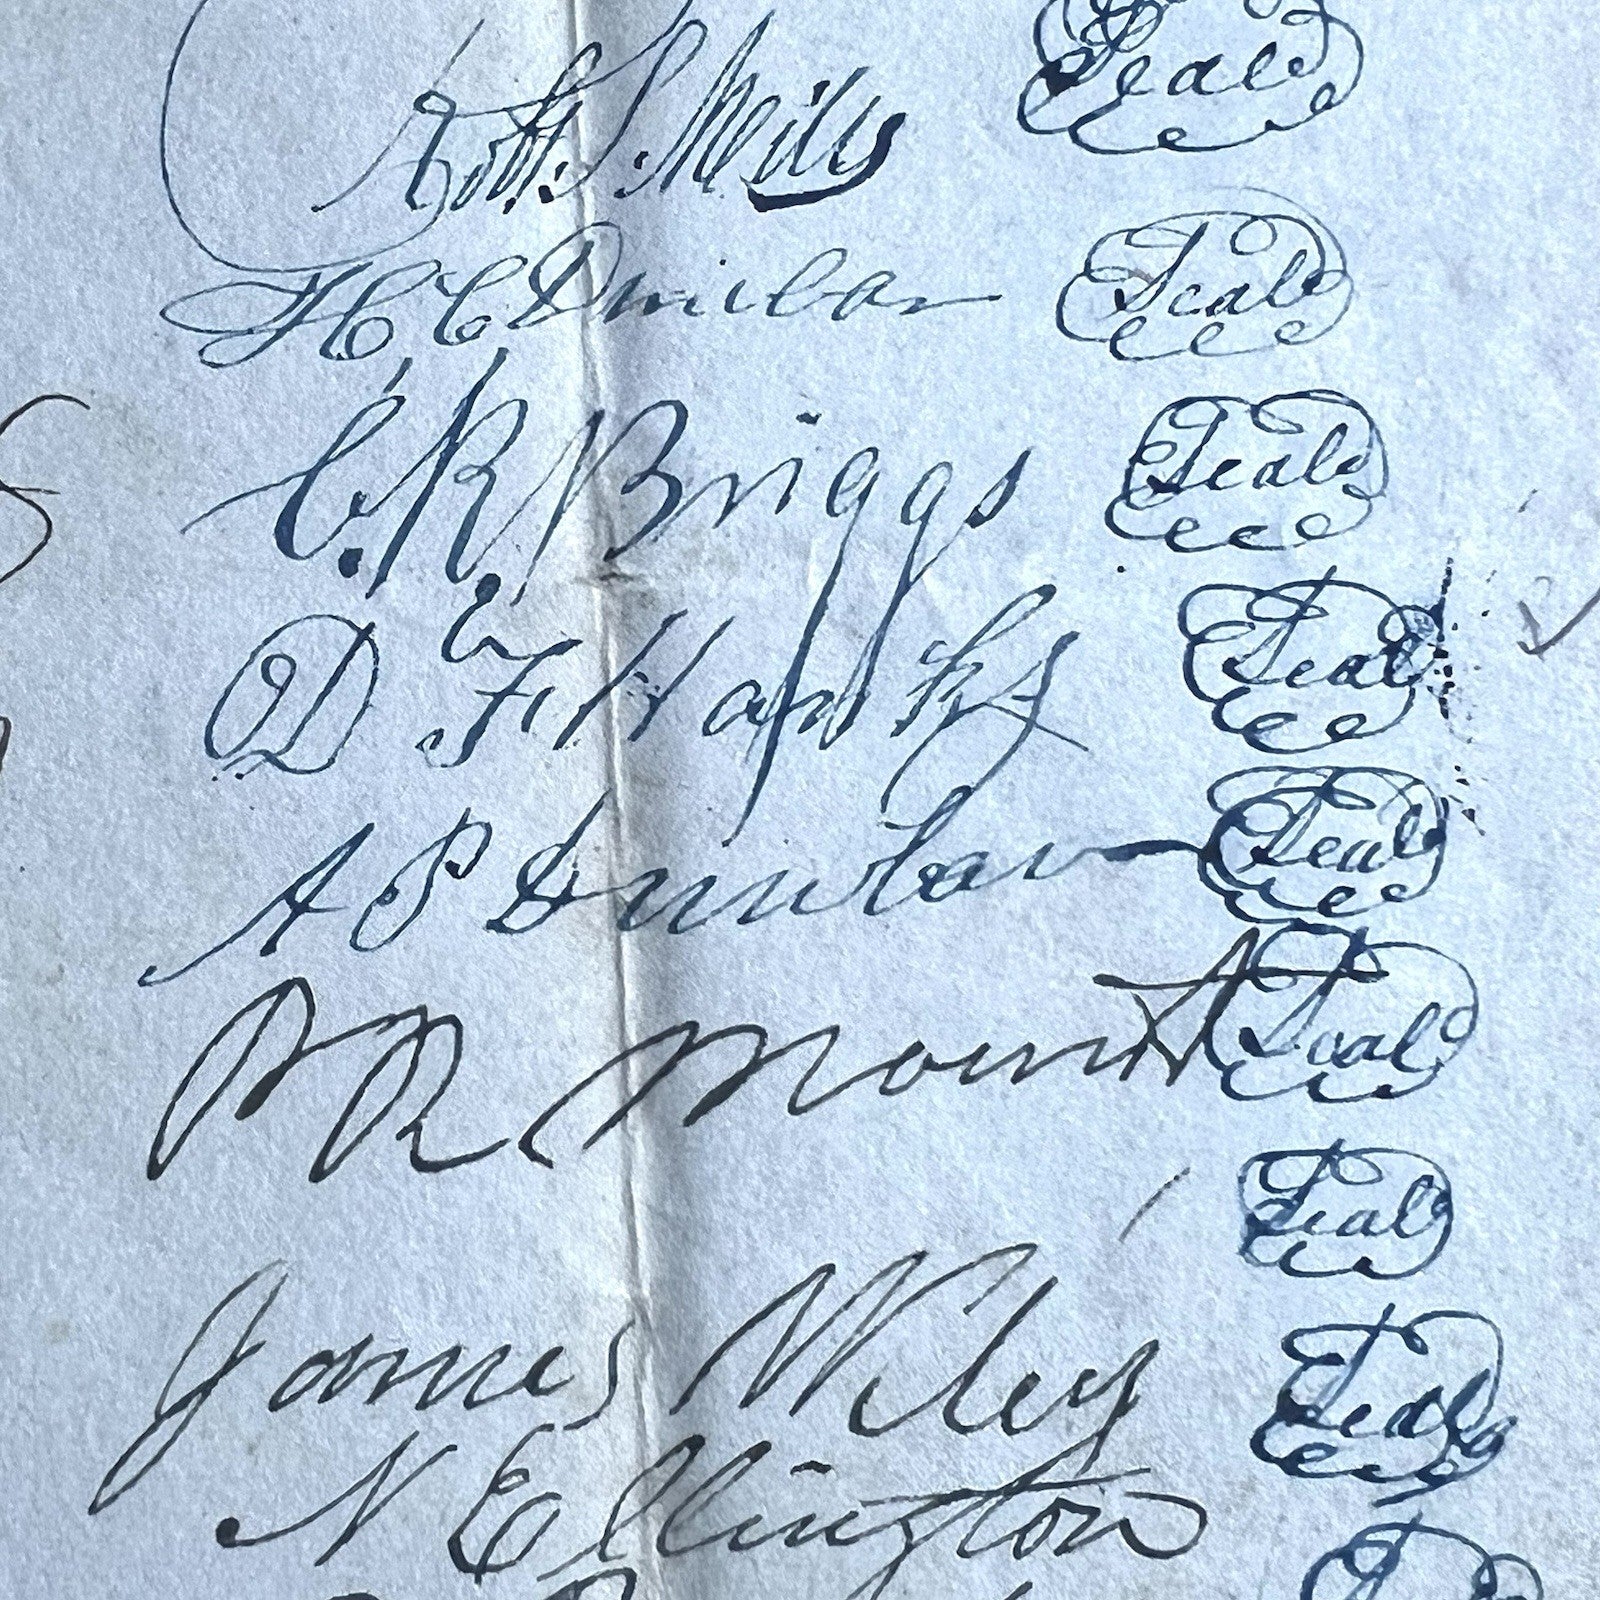 Robt. S. Neill Seal
H C Dunbar Seal
C. R Briggs Seal
D F Hanks Seal
A P Dunbar Seal
R Mount Seal
Seal
James Wiley Seal
N Ellington